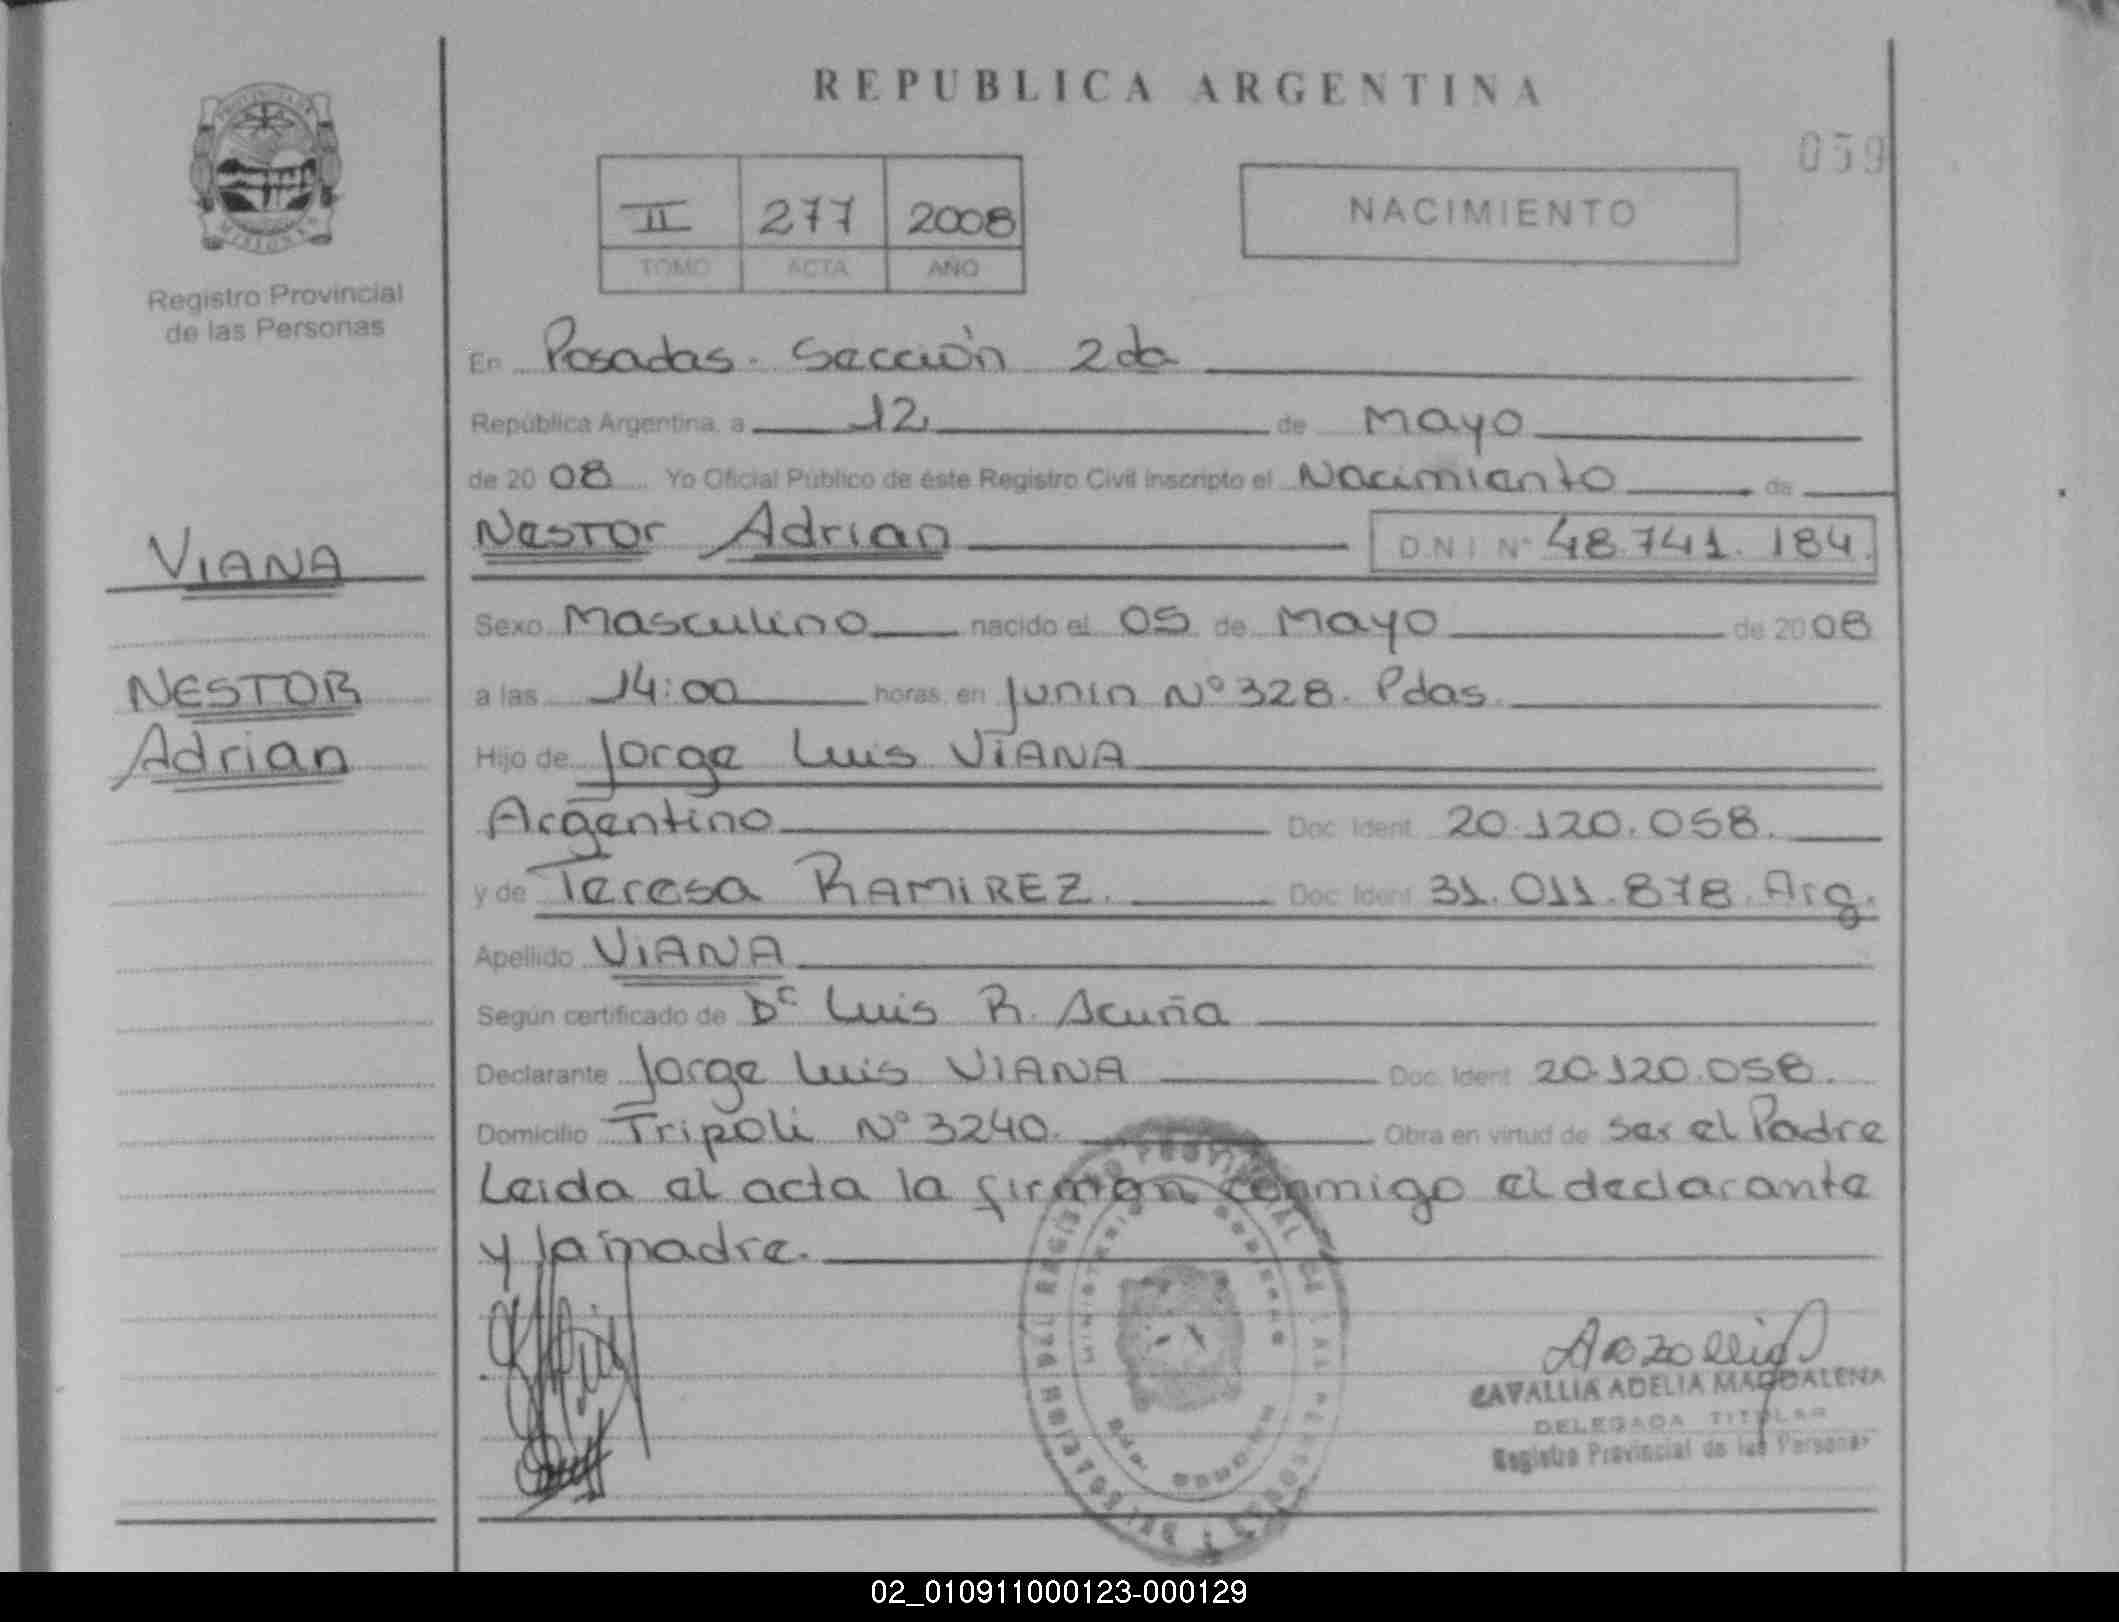 REPUBLICA ARGENTINA
059
II 277 2008
TOMO ACTA AÑO
NACIMIENTO
PROVINCIA DE
MISIONES
Registro Provincial
de las Personas
En Posadas. Sección 2da
República Argentina, a 12 de Mayo
de 2008 Yo Oficial Público de éste Registro Civil inscripto el Nacimiento de
VIANA
Nestor Adrian D.N.I. Nº 48.741.184.
Sexo Masculino nacido el 05 de Mayo de 2008
NESTOR
a las 14:00 horas, en Junin Nº 328. Pdas.
Adrian
Hijo de Jorge Luis VIANA
Argentino Doc. Ident. 20.120.058.
y de Teresa RAMIREZ. Doc. Ident. 31.011.878. Arg.
Apellido VIANA
Según certificado de Dr Luis R. Acuña
Declarante Jorge Luis VIANA Doc. Ident. 20.120.058.
Domicilio Tripoli Nº 3240. Obra en virtud de ser el Padre
Leida el acta la firman conmigo el declarante
y la madre.
REGISTRO PROVINCIAL DE LAS PERSONAS
MINISTERIO GOBIERNO
CAVALLIA ADELIA MAGDALENA
DELEGADA TITULAR
Registro Provincial de las Personas
02_010911000123-000129